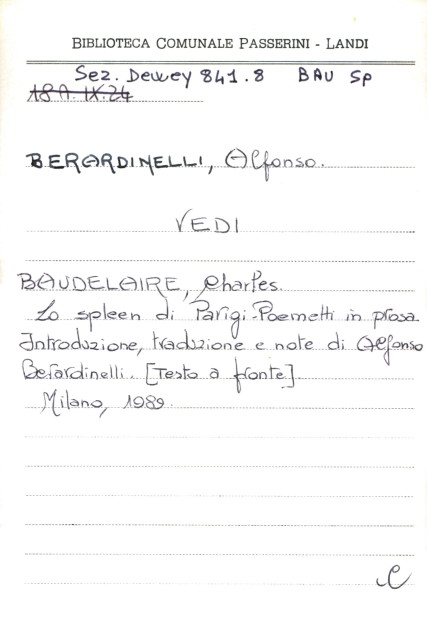 BIBLIOTECA COMUNALE PASSERINI - LANDI
Sez. Dewey 841.8 BAU Sp
18A. IX.24
BERARDINELLI, Alfonso.
VEDI
BAUDELAIRE, Charles.
Lo spleen di Parigi-Poemetti in prosa.
Introduzione, traduzione e note di Alfonso
Berardinelli. [Testo a fronte].
Milano, 1989.